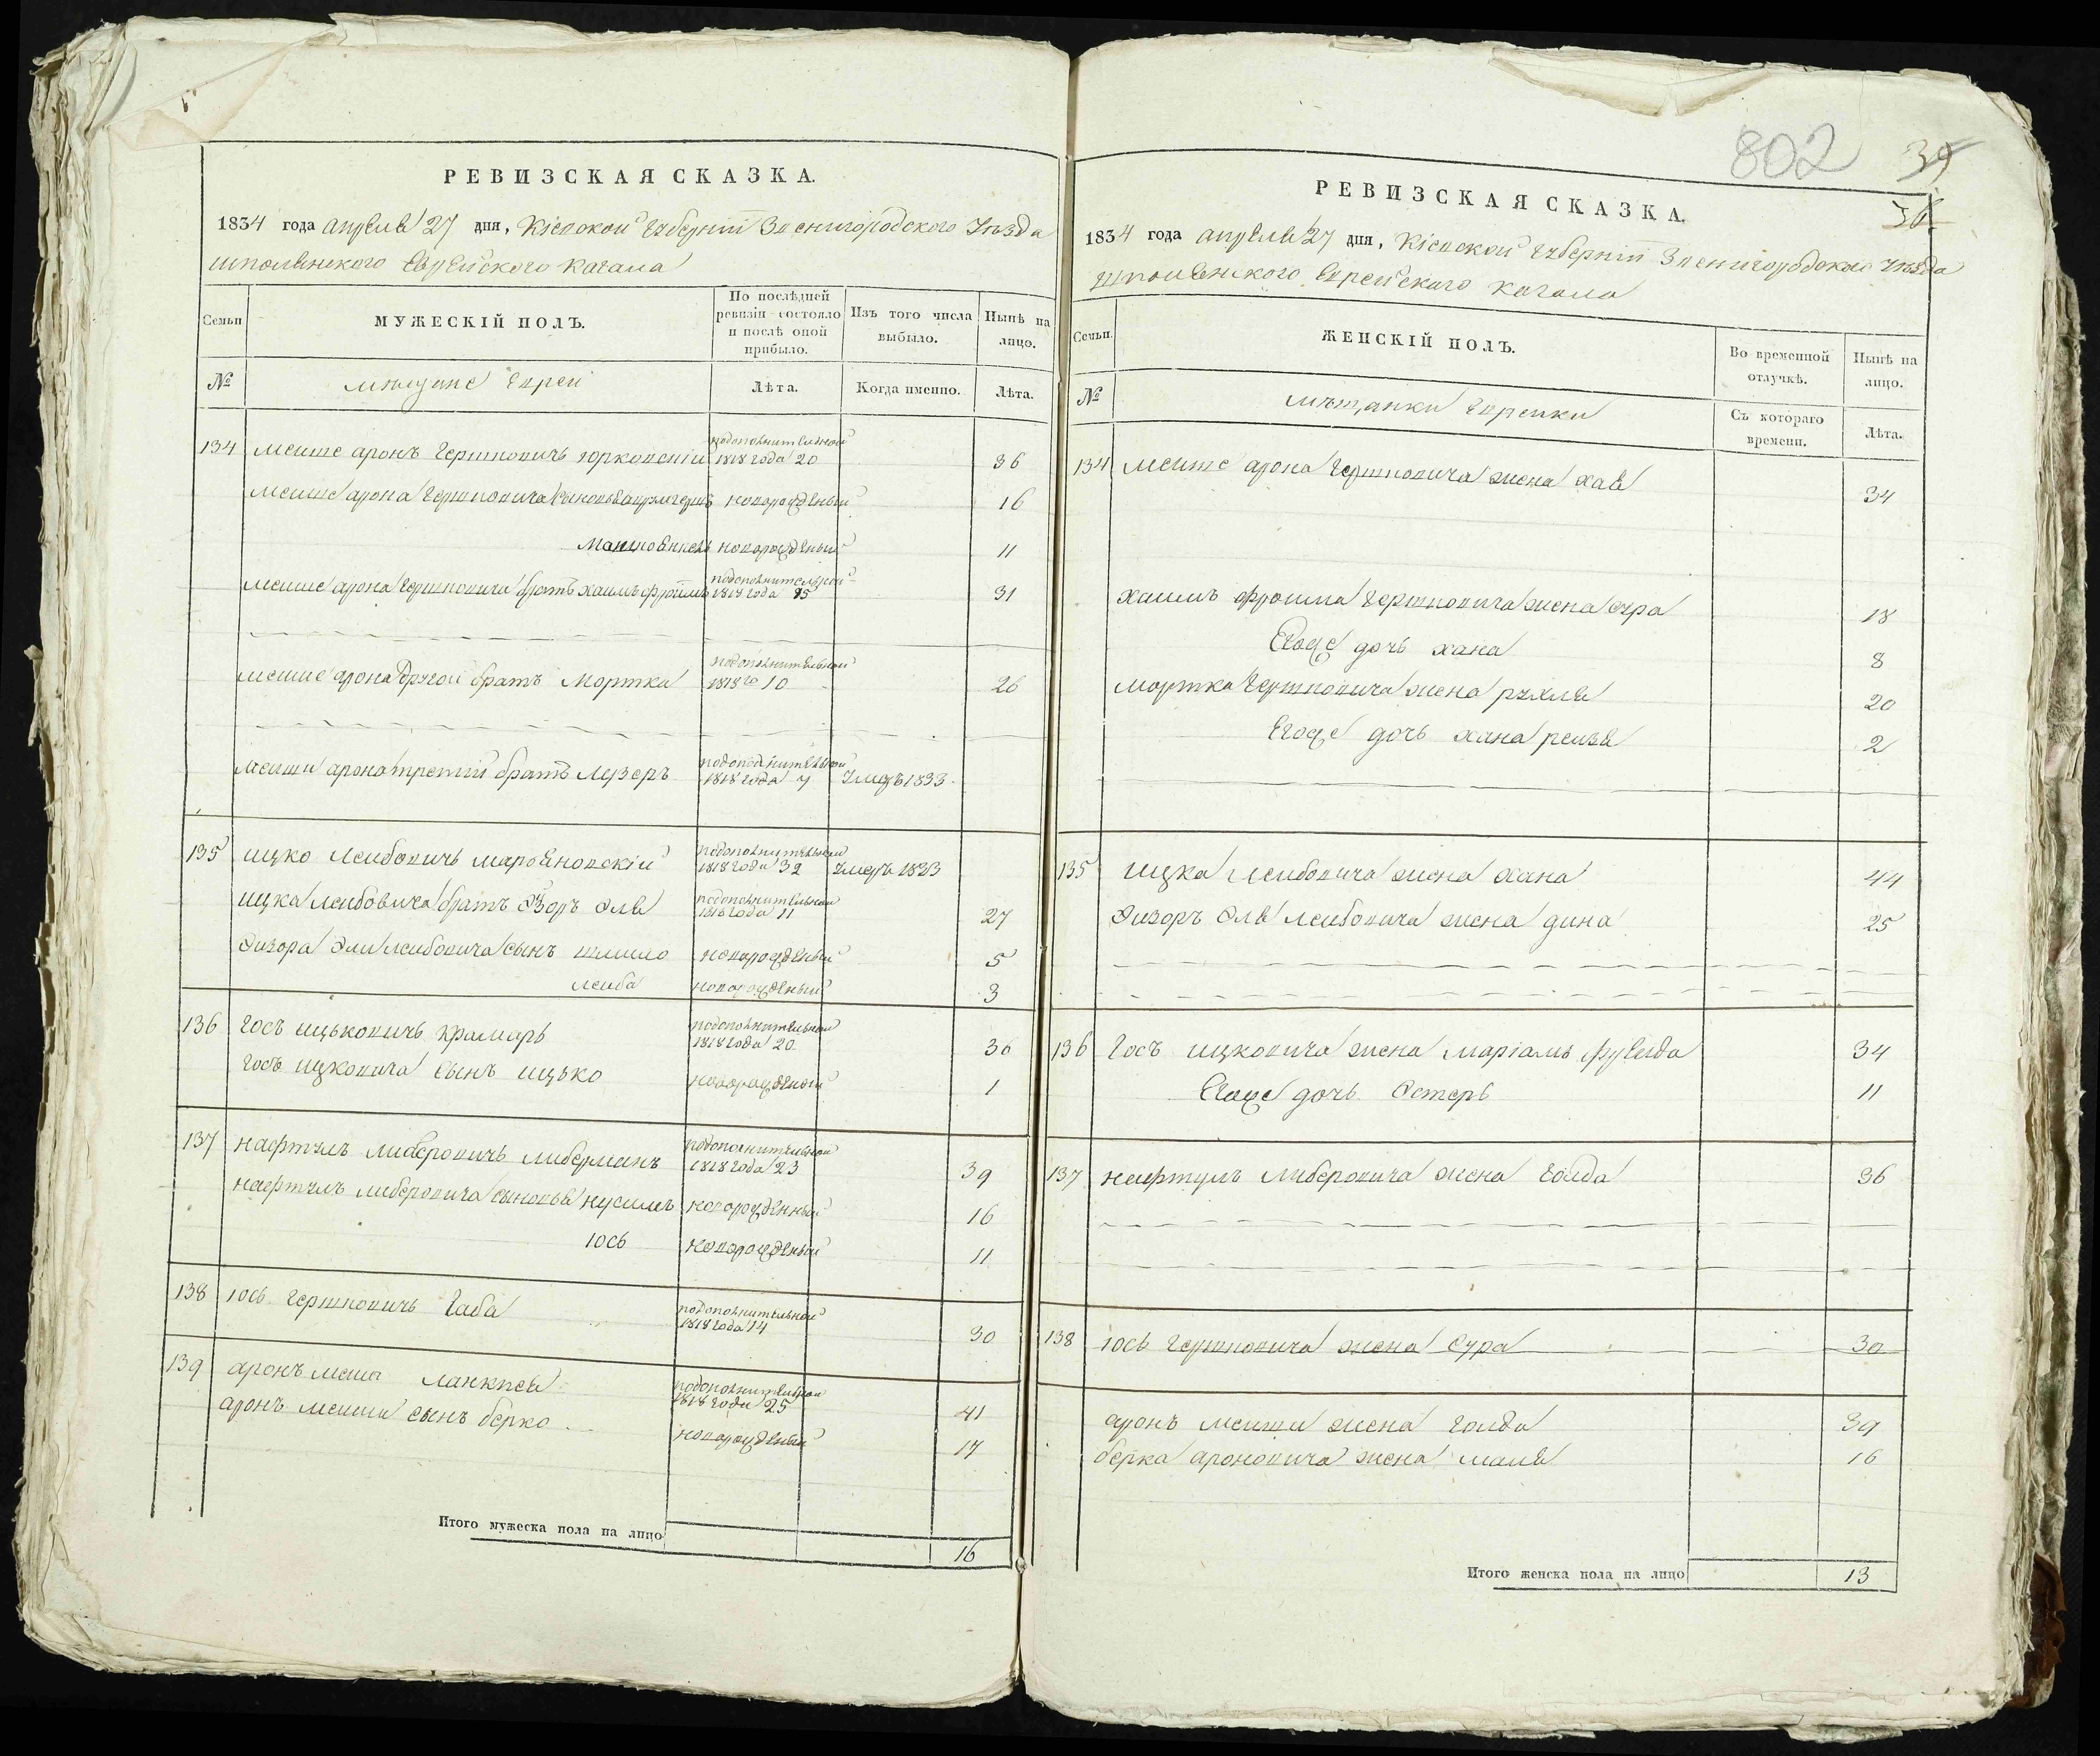 802 39
36
РЕВИЗСКАЯ СКАЗКА.
1834 года апреля 27 дня, Кіевской Губерніи Звенигородского Уезда
шполянского Еврейского кагала
Семьи
МУЖЕСКІЙ ПОЛЪ.
По послѣдней ревизіи состояло и послѣ оной прибыло.
Изъ того числа выбыло.
Нынѣ на лицо.
№
мещане Евреи
Лѣта.
Когда именно.
Лѣта.
134 Меише аронъ Гершковичъ подополнительной 1818 года 20 36
Меише арона Гершковича сыновья новорожденый 16
новорожденый 11
Меише арона Гершковича братъ хаимъ фроимъ подополнительной 1818 года 15 31
меише арона другой братъ мортка подополнительной 1818 го 10 26
меиши арона третій братъ лезеръ подополнительной 1818 года 7 Умеръ 1833
135 ицко леибовичъ марьяновскій подополнительной 1818 года 32 умеръ 1823
ицка леибовича братъ Эизоръ Эля подополнительной 1818 года 11 27
Эизора Эли леибовича сынъ шлиомо новорожденый 5
леиба новорожденый 3
136 Госъ ицьковичъ крамаръ подополнительной 1818 года 20 36
Госъ ицковича сынъ ицько новорожденой 1
137 нафтулъ либеровичъ либерманъ подополнительной 1818 года 23 39
нафтулъ либеровича сыновья нусимъ новорожденный 16
іось новорожденый 11
138 іось гершковичъ баба подополнительной 1818 года 14 30
139 аронъ меиша подополнительной 1818 года 25 41
аронъ меиши сынъ берко новорожденый 17
Итого мужеска пола на лицо 16
РЕВИЗСКАЯ СКАЗКА.
1834 года апреля 27 дня, Кіевской Губерніи Звенигородского уезда
шполянского Еврейского кагала
Семьи.
ЖЕНСКІЙ ПОЛЪ.
Во временной отлучкѣ.
Нынѣ на лицо.
№
мѣщанки Евреики
Съ котораго времени.
Лѣта.
134 Меише арона Гершковича жена хая 34
хаимъ фроима Гершковича жена сура 18
Егоже дочь хана 8
мортка Гершковича жена рухля 20
Егоже дочь хана реизя 2
135 ицка леибовича жена хана 44
Эизоръ Эля леибовича жена дина 25
136 Госъ ицковича жена маріамъ фруеида 34
Егоже дочь Эстеръ 11
137 нафтулъ либеровича жена Голда 36
138 іось гершковича жена сура 30
аронъ меиши жена голда 39
берка ароновича жена маля 16
Итого женска пола на лицо 13